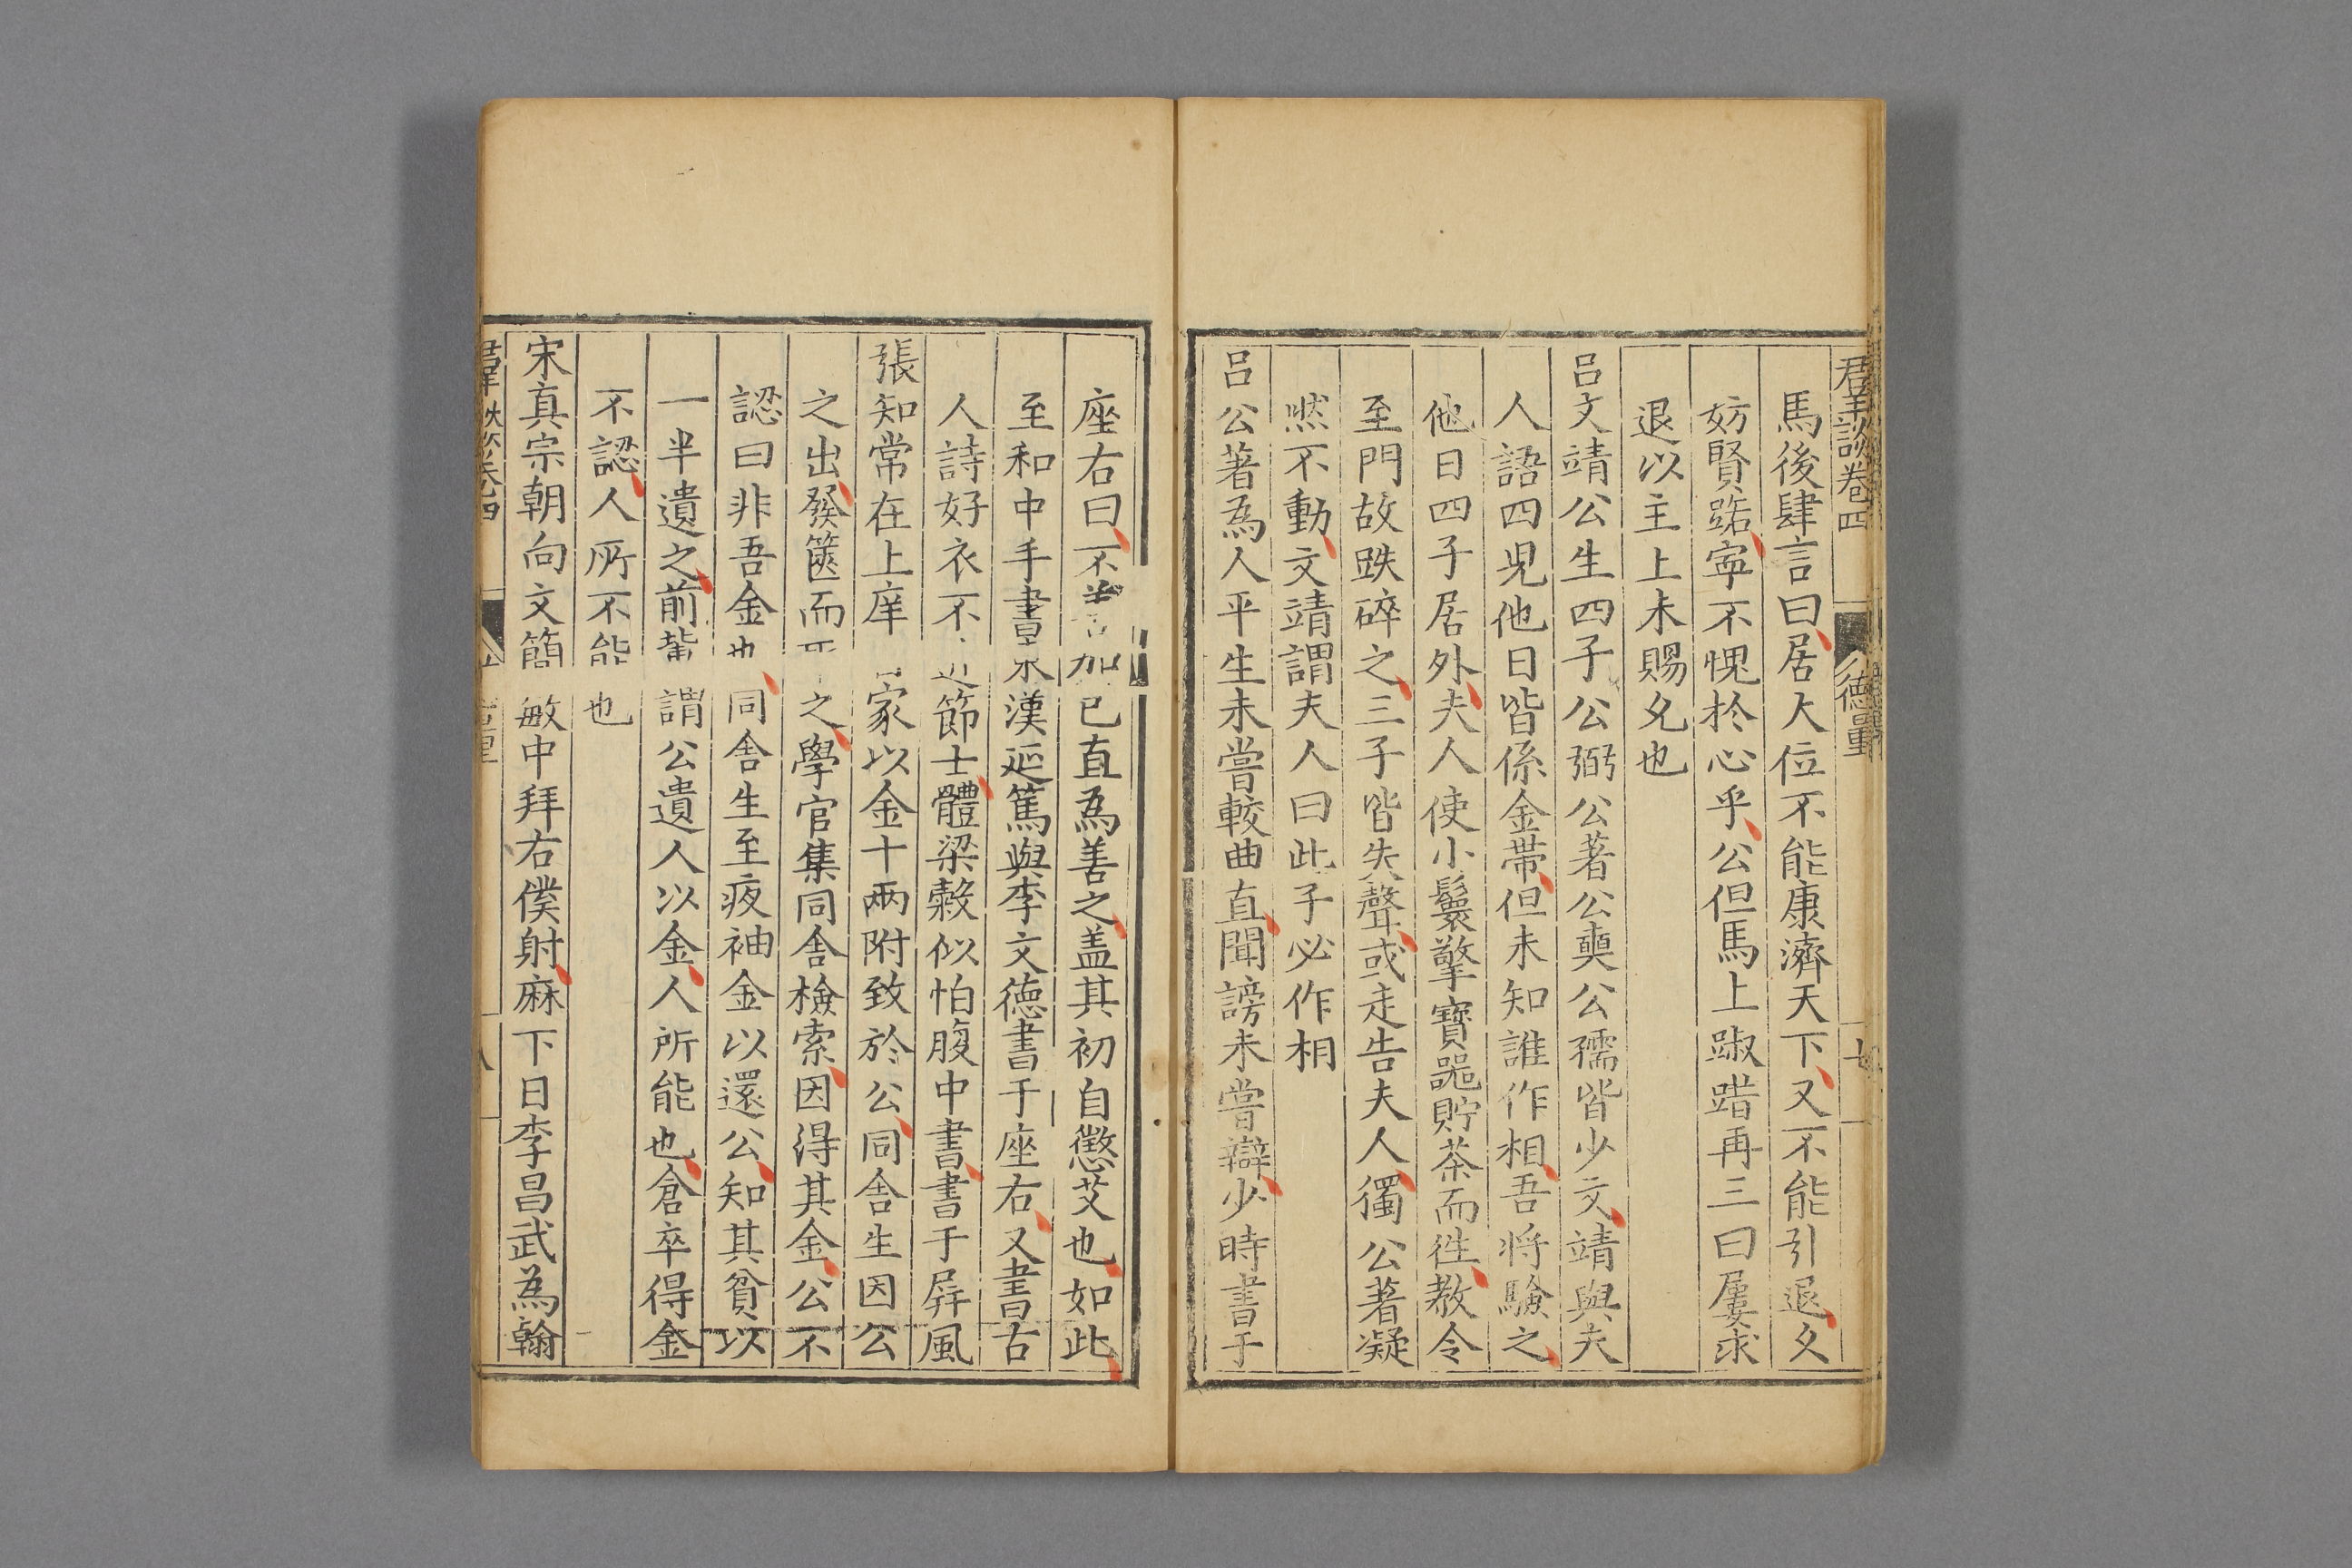 羣談卷四 德量 七
馬後肆言曰居大位不能康濟天下又不能引退久
妨賢路寧不愧於心乎公但馬上踧踖再三曰屢求
退以主上未賜允也
呂文靖公生四子公弼公著公奭公孺皆少文靖與夫
人語四兒他日皆係金帶但未知誰作相吾將驗之
他日四子居外夫人使小鬟擎寶噐貯茶而往教令
至門故跌碎之三子皆失聲或走告夫人獨公著凝
然不動文靖謂夫人曰此子必作相
呂公著為人平生未嘗較曲直聞謗未嘗辯少時書于
座右曰不善加己直為善之盖其初自懲艾也如此
至和中手書東漢延篤與李文德書于座右又書古
人詩好衣不近節士體梁穀似怕腹中書書于屏風
張知常在上庠家以金十兩附致於公同舍生因公
之出發篋而之學官集同舍檢索因得其金公不
認曰非吾金也同舍生至夜袖金以還公知其貧以
一半遺之前輩謂公遺人以金人所能也倉卒得金
不認人所不能也
宋真宗朝向文簡敏中拜右僕射麻下日李昌武為翰
羣談卷四 八